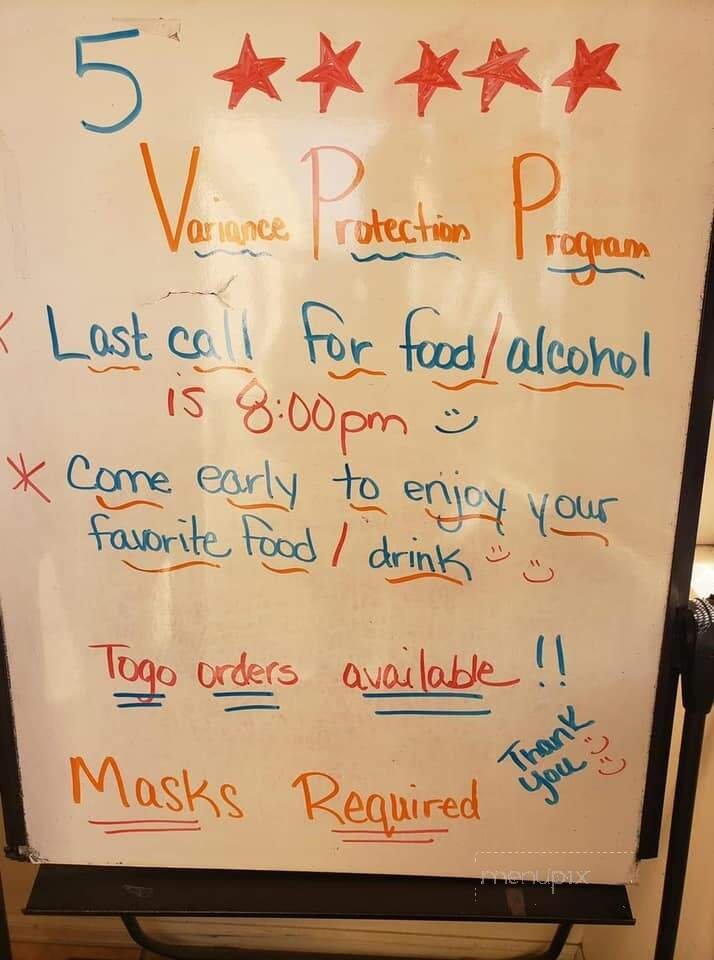 5 ★ ★ ★ ★ ★
Variance Protection Program
* Last call for food/alcohol
is 8:00pm :)
* Come early to enjoy your
favorite food / drink :) :)
Togo orders available !!
Thank
you :) :)
Masks Required
menupix